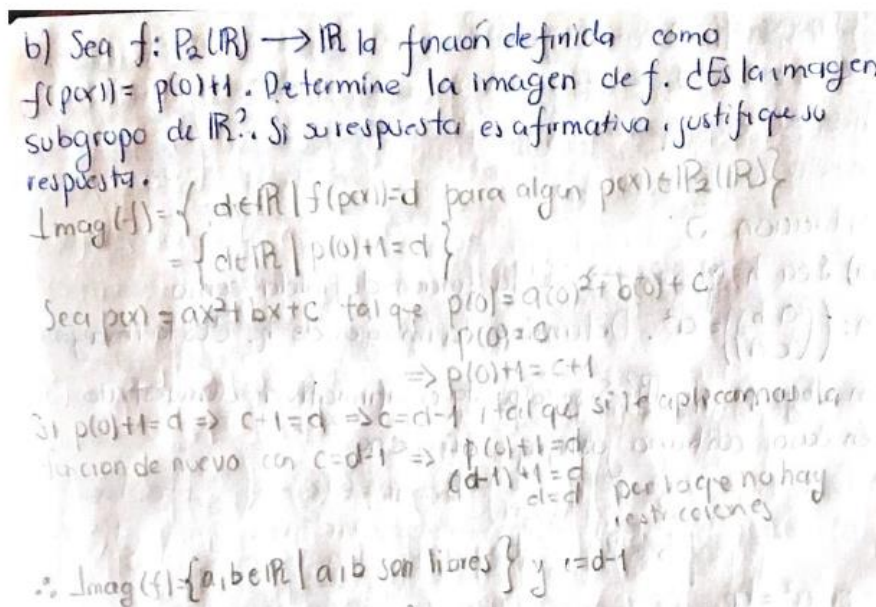 b) Sea f: P₂(ℝ) → ℝ la función definida como
f(p(x)) = p(0)+1. Determine la imagen de f. ¿Es la imagen
subgrupo de ℝ?. Si su respuesta es afirmativa, justifique su
respuesta.
Imag(f) = { d∈ℝ | f(p(x))=d para algun p(x)∈ℙ₂(ℝ)}
= { d∈ℝ | p(0)+1=d }
Sea p(x) = ax²+bx+c tal que p(0)=a(0)²+b(0)+c
p(0)=c
=> p(0)+1=c+1
Si p(0)+1=d => c+1=d => c=d-1, tal que si le aplicamos la
de nuevo con c=d-1 => p(0)+1=d
(d-1)+1=d
d=d por lo que no hay
restricciones
∴ Imag(f)={a,b∈ℝ | a,b son libres} y c=d-1